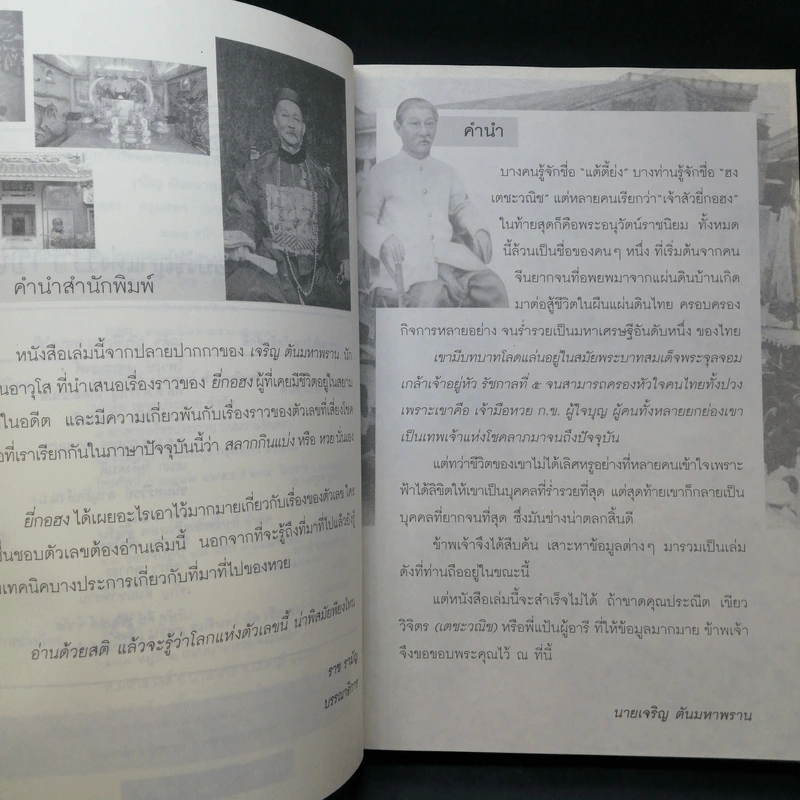 คำนำสำนักพิมพ์
หนังสือเล่มนี้จากปลายปากกาของ เจริญ ตันมหาพราน นัก
นอาวุโส ที่นำเสนอเรื่องราวของ ยี่กอฮง ผู้ที่เคยมีชีวิตอยู่ในสยาม
ในอดีต และมีความเกี่ยวพันกับเรื่องราวของตัวเลขที่เสี่ยงโชค
อที่เราเรียกกันในภาษาปัจจุบันนี้ว่า สลากกินแบ่ง หรือ หวย นั่นเอง
ยี่กอฮง ได้เผยอะไรเอาไว้มากมายเกี่ยวกับเรื่องของตัวเลข ใคร
ชื่นชอบตัวเลขต้องอ่านเล่มนี้ นอกจากที่จะรู้ถึงที่มาที่ไปแล้วยังรู้
เทคนิคบางประการเกี่ยวกับที่มาที่ไปของหวย
อ่านด้วยสติ แล้วจะรู้ว่าโลกแห่งตัวเลขนี้ น่าพิสมัยเพียงไหน
ราช รามัญ
บรรณาธิการ
คำนำ
บางคนรู้จักชื่อ "แต้ตี้ย่ง" บางท่านรู้จักชื่อ "ฮง
เตชะวณิช" แต่หลายคนเรียกว่า "เจ้าสัวยี่กอฮง"
ในท้ายสุดก็คือพระอนุวัตน์ราชนิยม ทั้งหมด
นี้ล้วนเป็นชื่อของคนๆ หนึ่ง ที่เริ่มต้นจากคน
จีนยากจนที่อพยพมาจากแผ่นดินบ้านเกิด
มาต่อสู้ชีวิตในผืนแผ่นดินไทย ครอบครอง
กิจการหลายอย่าง จนร่ำรวยเป็นมหาเศรษฐีอันดับหนึ่ง ของไทย
เขามีบทบาทโลดแล่นอยู่ในสมัยพระบาทสมเด็จพระจุลจอม
เกล้าเจ้าอยู่หัว รัชกาลที่ ๕ จนสามารถครองหัวใจคนไทยทั้งปวง
เพราะเขาคือ เจ้ามือหวย ก.ข. ผู้ใจบุญ ผู้คนทั้งหลายยกย่องเขา
เป็นเทพเจ้าแห่งโชคลาภมาจนถึงปัจจุบัน
แต่ทว่าชีวิตของเขาไม่ได้เลิศหรูอย่างที่หลายคนเข้าใจเพราะ
ฟ้าได้ลิขิตให้เขาเป็นบุคคลที่ร่ำรวยที่สุด แต่สุดท้ายเขาก็กลายเป็น
บุคคลที่ยากจนที่สุด ซึ่งมันช่างน่าตลกสิ้นดี
ข้าพเจ้าจึงได้สืบค้น เสาะหาข้อมูลต่างๆ มารวมเป็นเล่ม
ดังที่ท่านถืออยู่ในขณะนี้
แต่หนังสือเล่มนี้จะสำเร็จไม่ได้ ถ้าขาดคุณประณีต เขียว
วิจิตร (เตชะวณิช) หรือพี่แป้นผู้อารี ที่ให้ข้อมูลมากมาย ข้าพเจ้า
จึงขอขอบพระคุณไว้ ณ ที่นี้
นายเจริญ ตันมหาพราน